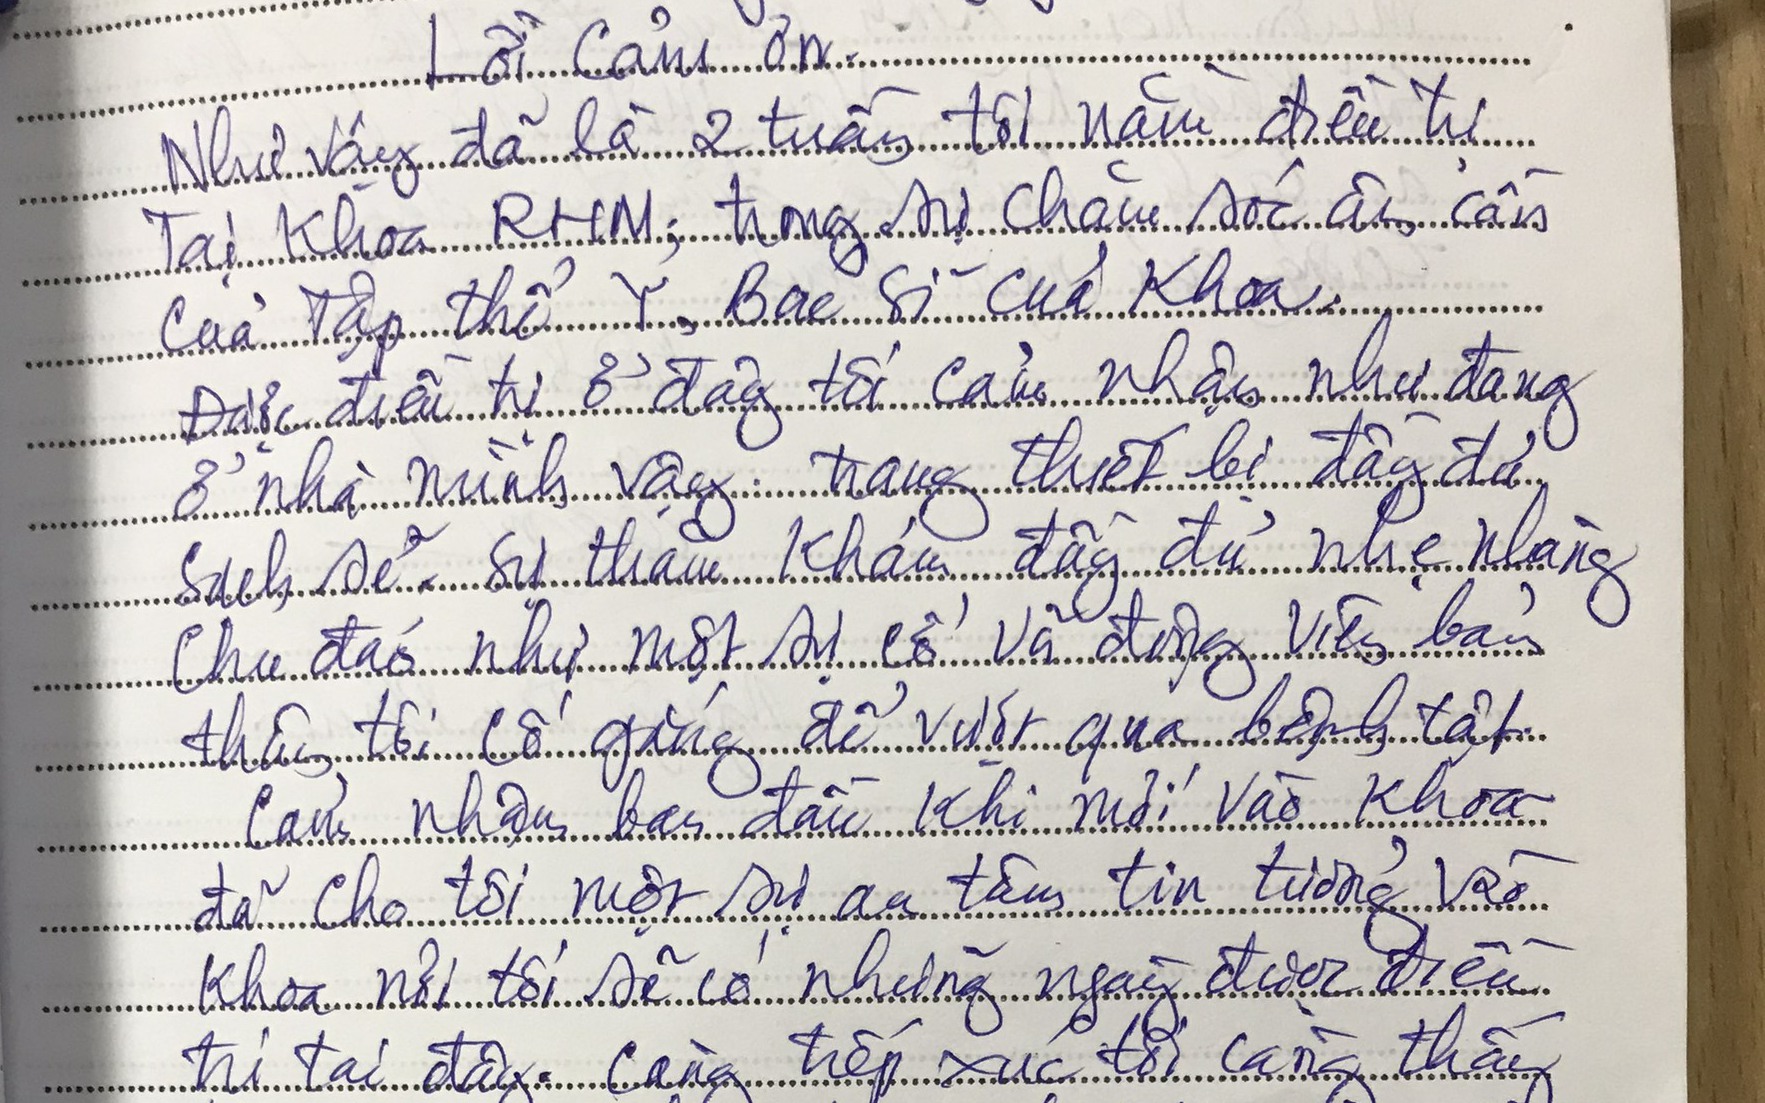 Lời cảm ơn.
Như vậy đã là 2 tuần tôi nằm điều trị
Tại Khoa RHM; trong sự chăm sóc ân cần
của Tập thể Y, Bác sĩ của Khoa.
Được điều trị ở đây tôi cảm nhận như đang
ở nhà mình vậy. trang thiết bị đầy đủ
sạch sẽ. sự thăm khám đầy đủ nhẹ nhàng
chu đáo như một sự cổ vũ động viên bản
thân tôi cố gắng để vượt qua bệnh tật.
Cảm nhận ban đầu khi mới vào khoa
đã cho tôi một sự an tâm tin tưởng vào
khoa nơi tôi sẽ có những ngày được điều
trị tại đây. càng tiếp xúc tôi càng thấy